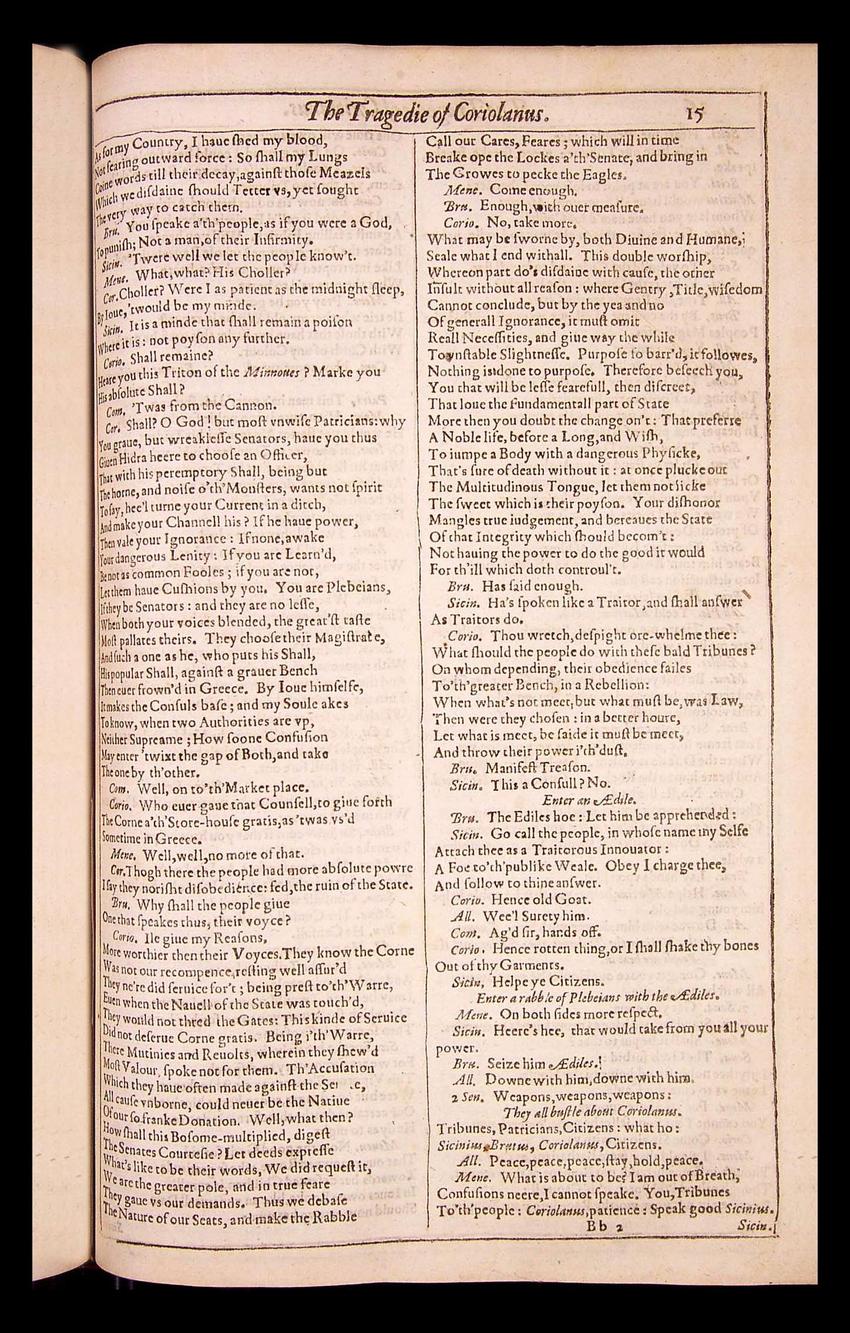 The Tragedie of Coriolanus.
15
As for my Country, I haue ſhed my blood,
Not fearing outward force: So ſhall my Lungs
Coine words till their decay, againſt thoſe Meazels
Which we diſdaine ſhould Tetter vs, yet ſought
The very way to catch them.
Bru. You ſpeake a'th'people, as if you were a God,
To puniſh; Not a man, of their Infirmity.
Sicin. 'Twere well we let the people know't.
Mene. What, what? His Choller?
Cor. Choller? Were I as patient as the midnight ſleep,
By Ioue, 'twould be my minde.
Sicin. It is a minde that ſhall remain a poiſon
Where it is: not poyſon any further.
Corio. Shall remaine?
Heare you this Triton of the Minnoues? Marke you
His abſolute Shall?
Com. 'Twas from the Cannon.
Cor. Shall? O God! but moſt vnwiſe Patricians: why
You graue, but wreakleſſe Senators, haue you thus
Giuen Hidra heere to chooſe an Officer,
That with his peremptory Shall, being but
The horne, and noiſe o'th'Monſters, wants not ſpirit
To ſay, hee'l turne your Current in a ditch,
And make your Channell his? If he haue power,
Then vale your Ignorance: If none, awake
Your dangerous Lenity: If you are Learn'd,
Be not as common Fooles; if you are not,
Let them haue Cuſhions by you. You are Plebeians,
If they be Senators: and they are no leſſe,
When both your voices blended, the great'ſt taſte
Moſt pallates theirs. They chooſe their Magiſtrate,
And ſuch a one as he, who puts his Shall,
His popular Shall, againſt a grauer Bench
Then euer frown'd in Greece. By Ioue himſelfe,
It makes the Conſuls baſe; and my Soule akes
To know, when two Authorities are vp,
Neither Supreame; How ſoone Confuſion
May enter 'twixt the gap of Both, and take
The one by th'other.
Com. Well, on to'th'Market place.
Corio. Who euer gaue that Counſell, to giue forth
The Corne a'th'Store-houſe gratis, as 'twas vs'd
Sometime in Greece.
Mene. Well, well, no more of that.
Cor. Thogh there the people had more abſolute powre
I ſay they noriſht diſobedience: fed, the ruin of the State.
Bru. Why ſhall the people giue
One that ſpeakes thus, their voyce?
Corio. Ile giue my Reaſons,
More worthier then their Voyces. They know the Corne
Was not our recompence, reſting well aſſur'd
They ne're did ſeruice for't; being preſt to'th'Warre,
Euen when the Nauell of the State was touch'd,
They would not thred the Gates: This kinde of Seruice
Did not deſerue Corne gratis. Being i'th'Warre,
There Mutinies and Reuolts, wherein they ſhew'd
Moſt Valour, ſpoke not for them. Th'Accuſation
Which they haue often made againſt the
All cauſe vnborne, could neuer be the Natiue
Of our ſo franke Donation. Well, what then?
How ſhall this Boſome-multiplied, digeſt
The Senates Courteſie? Let deeds expreſſe
What's like to be their words, We did requeſt it,
We are the greater pole, and in true feare
They gaue vs our demands. Thus we debaſe
The Nature of our Seats, and make the Rabble
Call our Cares, Feares; which will in time
Breake ope the Lockes a'th'Senate, and bring in
The Crowes to pecke the Eagles.
Mene. Come enough.
Bru. Enough, with ouer meaſure.
Corio. No, take more.
What may be ſworne by, both Diuine and Humane,
Seale what I end withall. This double worſhip,
Whereon part do's diſdaine with cauſe, the other
Inſult without all reaſon: where Gentry, Title, wiſedom
Cannot conclude, but by the yea and no
Of generall Ignorance, it muſt omit
Reall Neceſſities, and giue way the while
To vnſtable Slightneſſe. Purpoſe ſo barr'd, it followes,
Nothing is done to purpoſe. Therefore beſeech you,
You that will be leſſe fearefull, then diſcreet,
That loue the Fundamentall part of State
More then you doubt the change on't: That preferre
A Noble life, before a Long, and Wiſh,
To iumpe a Body with a dangerous Phyſicke,
That's ſure of death without it: at once plucke out
The Multitudinous Tongue, let them not licke
The ſweet which is their poyſon. Your diſhonor
Mangles true iudgement, and bereaues the State
Of that Integrity which ſhould becom't:
Not hauing the power to do the good it would
For th'ill which doth controul't.
Bru. Has ſaid enough.
Sicin. Ha's ſpoken like a Traitor, and ſhall anſwer
As Traitors do.
Corio. Thou wretch, deſpight ore-whelme thee:
What ſhould the people do with theſe bald Tribunes?
On whom depending, their obedience failes
To'th'greater Bench, in a Rebellion:
When what's not meet, but what muſt be, was Law,
Then were they choſen: in a better houre,
Let what is meet, be ſaide it muſt be meet,
And throw their power i'th'duſt.
Bru. Manifeſt Treaſon.
Sicin. This a Conſull? No.
Enter an Ædile.
Bru. The Ediles hoe: Let him be apprehended:
Sicin. Go call the people, in whoſe name my Selfe
Attach thee as a Traitorous Innouator:
A Foe to'th'publike Weale. Obey I charge thee,
And follow to thine anſwer.
Corio. Hence old Goat.
All. Wee'l Surety him.
Com. Ag'd ſir, hands off.
Corio. Hence rotten thing, or I ſhall ſhake thy bones
Out of thy Garments.
Sicin. Helpe ye Citizens.
Enter a rabble of Plebeians with the Ædiles.
Mene. On both ſides more reſpect.
Sicin. Heere's hee, that would take from you all your
power.
Bru. Seize him Ædiles.
All. Downe with him, downe with him.
2 Sen. Weapons, weapons, weapons:
They all buſtle about Coriolanus.
Tribunes, Patricians, Citizens: what ho:
Sicinius, Brutus, Coriolanus, Citizens.
All. Peace, peace, peace, ſtay, hold, peace.
Mene. What is about to be? I am out of Breath,
Confuſions neere, I cannot ſpeake. You, Tribunes
To'th'people: Coriolanus, patience: Speak good Sicinius.
Bb 2
Sicin.